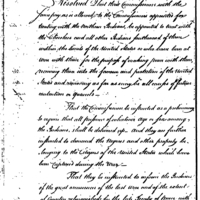 Resolved That three Commissioners with the
same pay as is allowed to the Commissioners appointed for
treating with the northern Indians, be appointed to treat with
the Cherokees and all other Indians southward of them
within the limits of the United States or who have been at
war with them for the purpose of making peace with them,
receiving them into the favour and protection of the United
States and removing as far as may be all causes of future
contention or quarrels
That the Commissioners be instructed as a preliminary
to require that all prisoners of whatever age or sex among
the Indians, shall be delivered up. And they are further
instructed to demand the Negroes and other property be-
longing to the Citizens of the United States which have
been captured during the War
That they be instructed to inform the Indians
of the great occurrences of the last war and of the extent
of Country relinquished by the late treaty of peace with